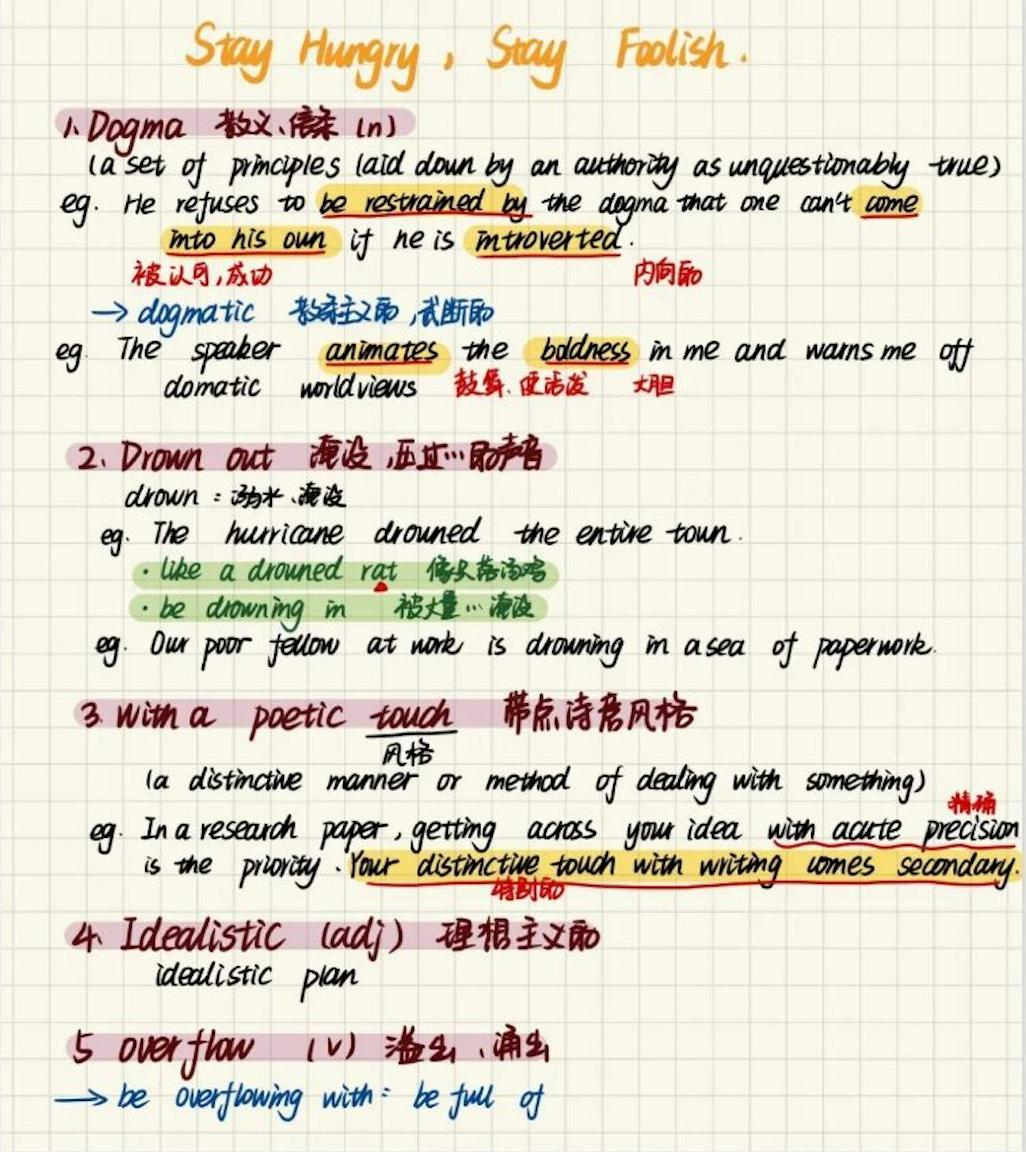 Stay Hungry, Stay Foolish.
1. Dogma 教义、信条 (n)
(a set of principles laid down by an authority as unquestionably true)
eg. He refuses to be restrained by the dogma that one can't come
into his own if he is introverted.
被认可,成功 内向的
→ dogmatic 教条主义的,武断的
eg. The speaker animates the boldness in me and warns me off
domatic worldviews 鼓舞、使活发 大胆
2. Drown out 淹没,压过…的声音
drown : 溺水、淹没
eg. The hurricane drowned the entire town.
· like a drowned rat 像只落汤鸡
· be drowning in 被大量…淹没
eg. Our poor fellow at work is drowning in a sea of paperwork.
3. with a poetic touch 带点诗意风格
风格
(a distinctive manner or method of dealing with something)
精确
eg. In a research paper, getting across your idea with acute precision
is the priority. Your distinctive touch with writing comes secondary.
特别的
4. Idealistic (adj) 理想主义的
idealistic plan
5 overflow (v) 溢出、涌出
→ be overflowing with: be full of